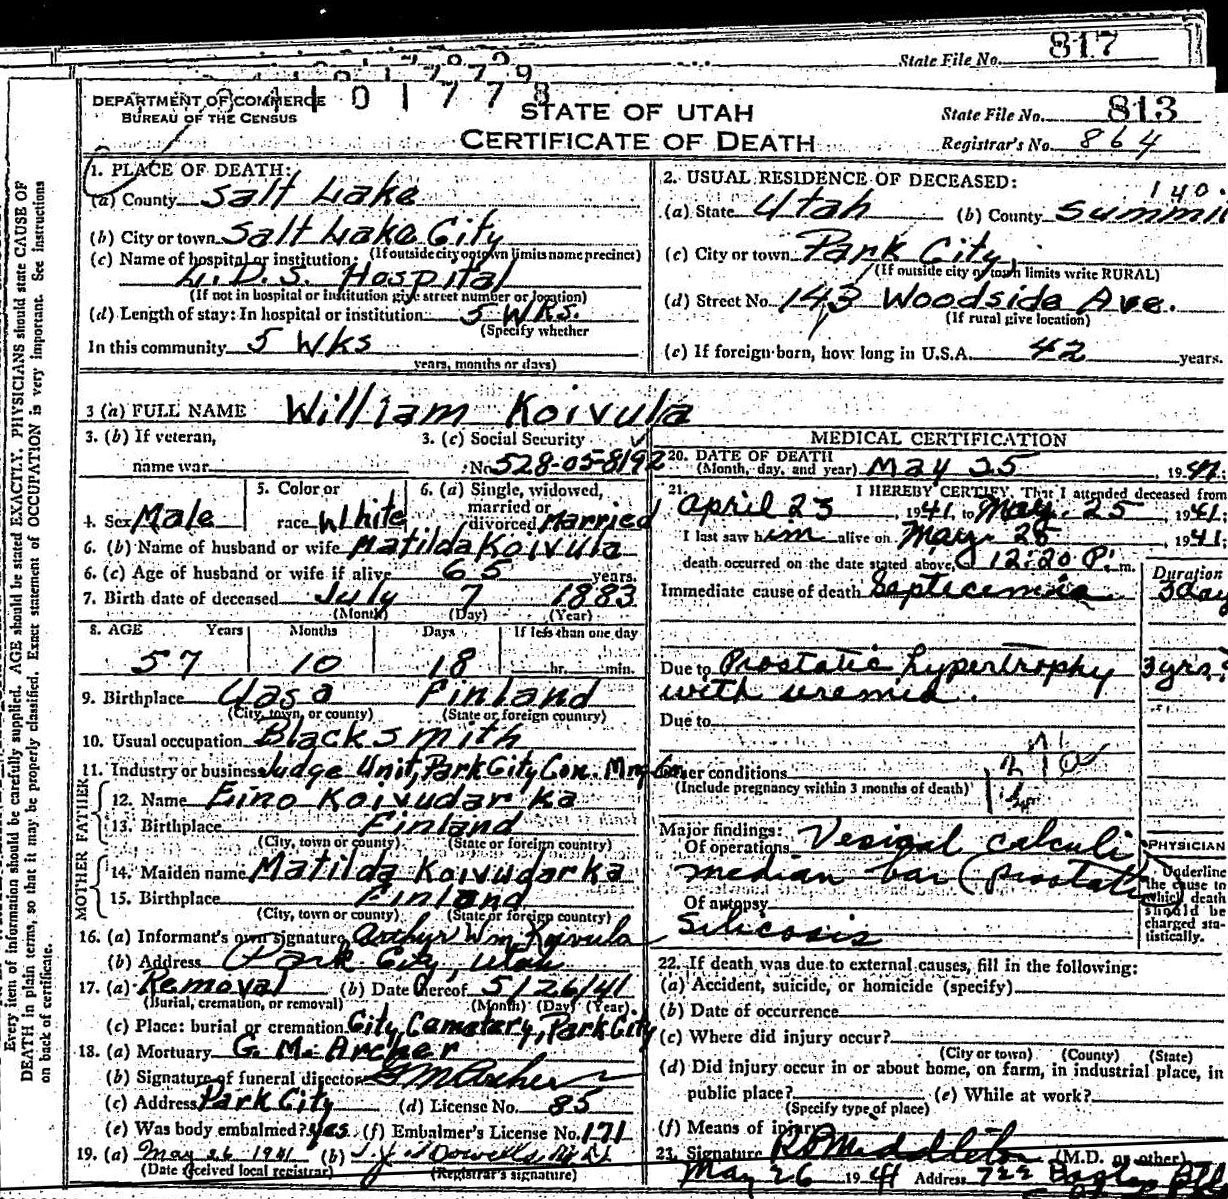 State File No. 817
DEPARTMENT OF COMMERCE
BUREAU OF THE CENSUS
STATE OF UTAH
CERTIFICATE OF DEATH
State File No. 813
Registrar's No. 864
1. PLACE OF DEATH:
(a) County Salt Lake
(b) City or town Salt Lake City
(If outside city or town limits name precinct)
(c) Name of hospital or institution:
L.D.S. Hospital
(If not in hospital or institution give street number or location)
(d) Length of stay: In hospital or institution 5 Wks.
(Specify whether
In this community 5 Wks
years, months or days)
2. USUAL RESIDENCE OF DECEASED:
140.
(a) State Utah (b) County Summit
(c) City or town Park City,
(If outside city or town limits write RURAL)
(d) Street No. 143 Woodside Ave.
(If rural give location)
(e) If foreign born, how long in U.S.A. 42 years.
3 (a) FULL NAME William Koivula
3. (b) If veteran,
name war
3. (c) Social Security
No. 528-05-8192
4. Sex Male
5. Color or
race White
6. (a) Single, widowed,
married or
divorced Married
6. (b) Name of husband or wife Matilda Koivula
6. (c) Age of husband or wife if alive 65 years.
7. Birth date of deceased July 7 1883
(Month) (Day) (Year)
8. AGE Years Months Days If less than one day
57 10 18 hr. min.
9. Birthplace Vasa Finland
(City, town, or county) (State or foreign country)
10. Usual occupation Blacksmith
11. Industry or business Judge Unit, Park City Con. Mng Co.
FATHER
12. Name Eino Koivudarka
13. Birthplace Finland
(City, town, or county) (State or foreign country)
MOTHER
14. Maiden name Matilda Koivudarka
15. Birthplace Finland
(City, town or county) (State or foreign country)
16. (a) Informant's own signature Arthur Wm Koivula
(b) Address Park City, Utah
17. (a) Removal (b) Date thereof 5/26/41
(Burial, cremation, or removal) (Month) (Day) (Year)
(c) Place: burial or cremation City Cemetery, Park City
18. (a) Mortuary G. M. Archer
(b) Signature of funeral director G M Archer
(c) Address Park City (d) License No. 85
(e) Was body embalmed? Yes (f) Embalmer's License No. 171
19. (a) May 26 1941 (b)
(Date received local registrar) (Registrar's signature)
MEDICAL CERTIFICATION
20. DATE OF DEATH
(Month, day, and year) May 25, 1941.
21. I HEREBY CERTIFY, That I attended deceased from
April 23, 1941, to May 25, 1941;
I last saw him alive on May 25, 1941;
death occurred on the date stated above, @ 12:20 P. m.
Duration
Immediate cause of death Septicemia 3 day
Due to Prostatic hypertrophy 3 yrs.
with uremia.
Due to
Other conditions
(Include pregnancy within 3 months of death)
Major findings:
Of operations Vesical calculi
median bar (prostatic)
Of autopsy
Silicosis
PHYSICIAN
Underline
the cause to
which death
should be
charged sta-
tistically.
22. If death was due to external causes, fill in the following:
(a) Accident, suicide, or homicide (specify)
(b) Date of occurrence
(c) Where did injury occur?
(City or town) (County) (State)
(d) Did injury occur in or about home, on farm, in industrial place, in
public place? (e) While at work?
(Specify type of place)
(f) Means of injury
23. Signature R P Middleton (M.D. or other)
May 26 1941 Address 722
Every item of information should be carefully supplied. AGE should be stated EXACTLY. PHYSICIANS should state CAUSE OF
DEATH in plain terms, so that it may be properly classified. Exact statement of OCCUPATION is very important. See instructions
on back of certificate.